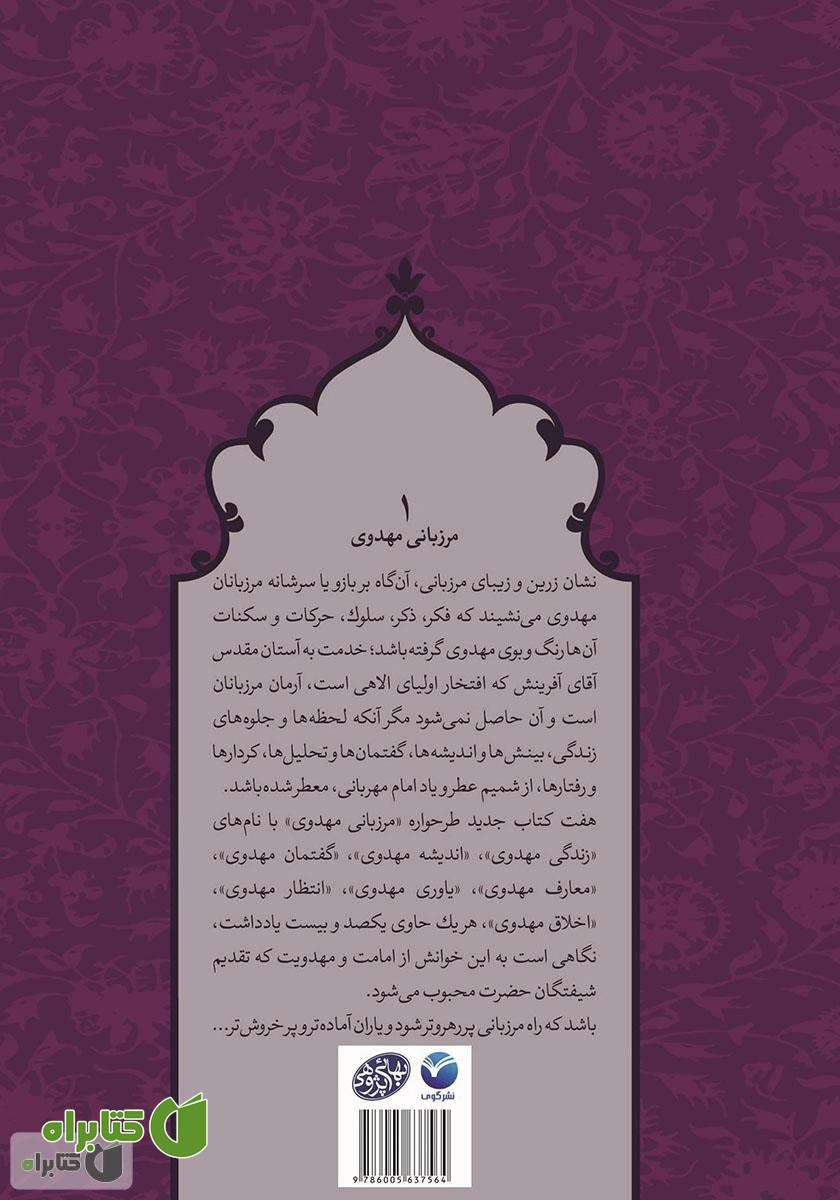 ۱
مرزبانی مهدوی
نشان زرین و زیبای مرزبانی، آن‌گاه بر بازو یا سرشانه مرزبانان
مهدوی می‌نشیند که فکر، ذکر، سلوك، حرکات و سکنات
آن‌ها رنگ و بوی مهدوی گرفته باشد؛ خدمت به آستان مقدس
آقای آفرینش که افتخار اولیای الاهی است، آرمان مرزبانان
است و آن حاصل نمی‌شود مگر آنکه لحظه‌ها و جلوه‌های
زندگی، بینش‌ها و اندیشه‌ها، گفتمان‌ها و تحلیل‌ها، کردارها
و رفتارها، از شمیم عطر و یاد امام مهربانی، معطر شده باشد.
هفت کتاب جدید طرحواره «مرزبانی مهدوی» با نام‌های
«زندگی مهدوی»، «اندیشه مهدوی»، «گفتمان مهدوی»،
«معارف مهدوی»، «یاوری مهدوی»، «انتظار مهدوی»،
«اخلاق مهدوی»، هر یك حاوی یکصد و بیست یادداشت،
نگاهی است به این خوانش از امامت و مهدویت که تقدیم
شیفتگان حضرت محبوب می‌شود.
باشد که راه مرزبانی پر رهرو‌تر شود و یاران آماده‌تر و پر خروش‌تر...
بهائی پژوهی
نشر گوی
9 786005 637564
کتابراه
کتابراه